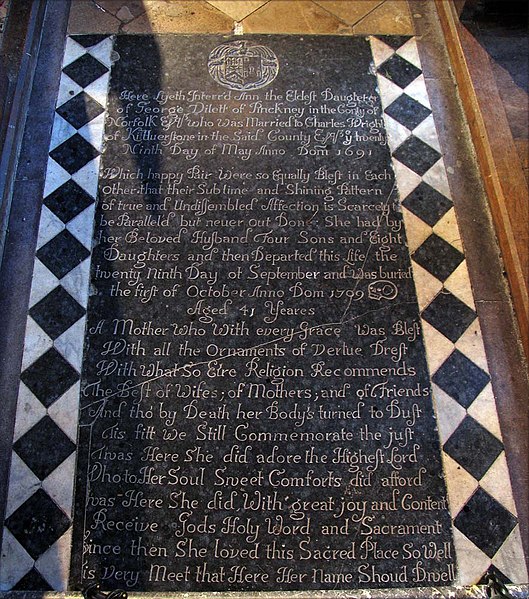 Here Lyeth Interr'd Ann the Eldest Daughter
of George Pilett of Pinckney in the County of
Norfolk Esqr who was Married to Charles Wright
of Killuerstone in the Said County Esqr ye twenty
Ninth Day of May Anno Dom 1691
Which happy Pair Were so Equally Blest in Each
other that their Sublime and Shining Pattern
of true and Undissembled Affection is Scarcely to
be Paralleld but neuer out Done She had by
her Beloved Husband Four Sons and Eight
Daughters and then Departed this life the
twenty Ninth Day of September and Was buried
the first of October Anno Dom 1709
Aged 41 Yeares
A Mother Who With every Grace Was Blest
With all the Ornaments of Vertue Drest
With What So E're Religion Recommends
The Best of Wifes, of Mothers, and of Friends
And tho' by Death her Body's turned to Dust
tis fitt we Still Commemorate the just
twas Here She did adore the Highest Lord
Who to Her Soul Sweet Comforts did afford
twas Here She did, With great joy and Content
Receive Gods Holy Word and Sacrament
Since then She loved this Sacred Place So Well
is very Meet that Here Her Name Shoud Dwell